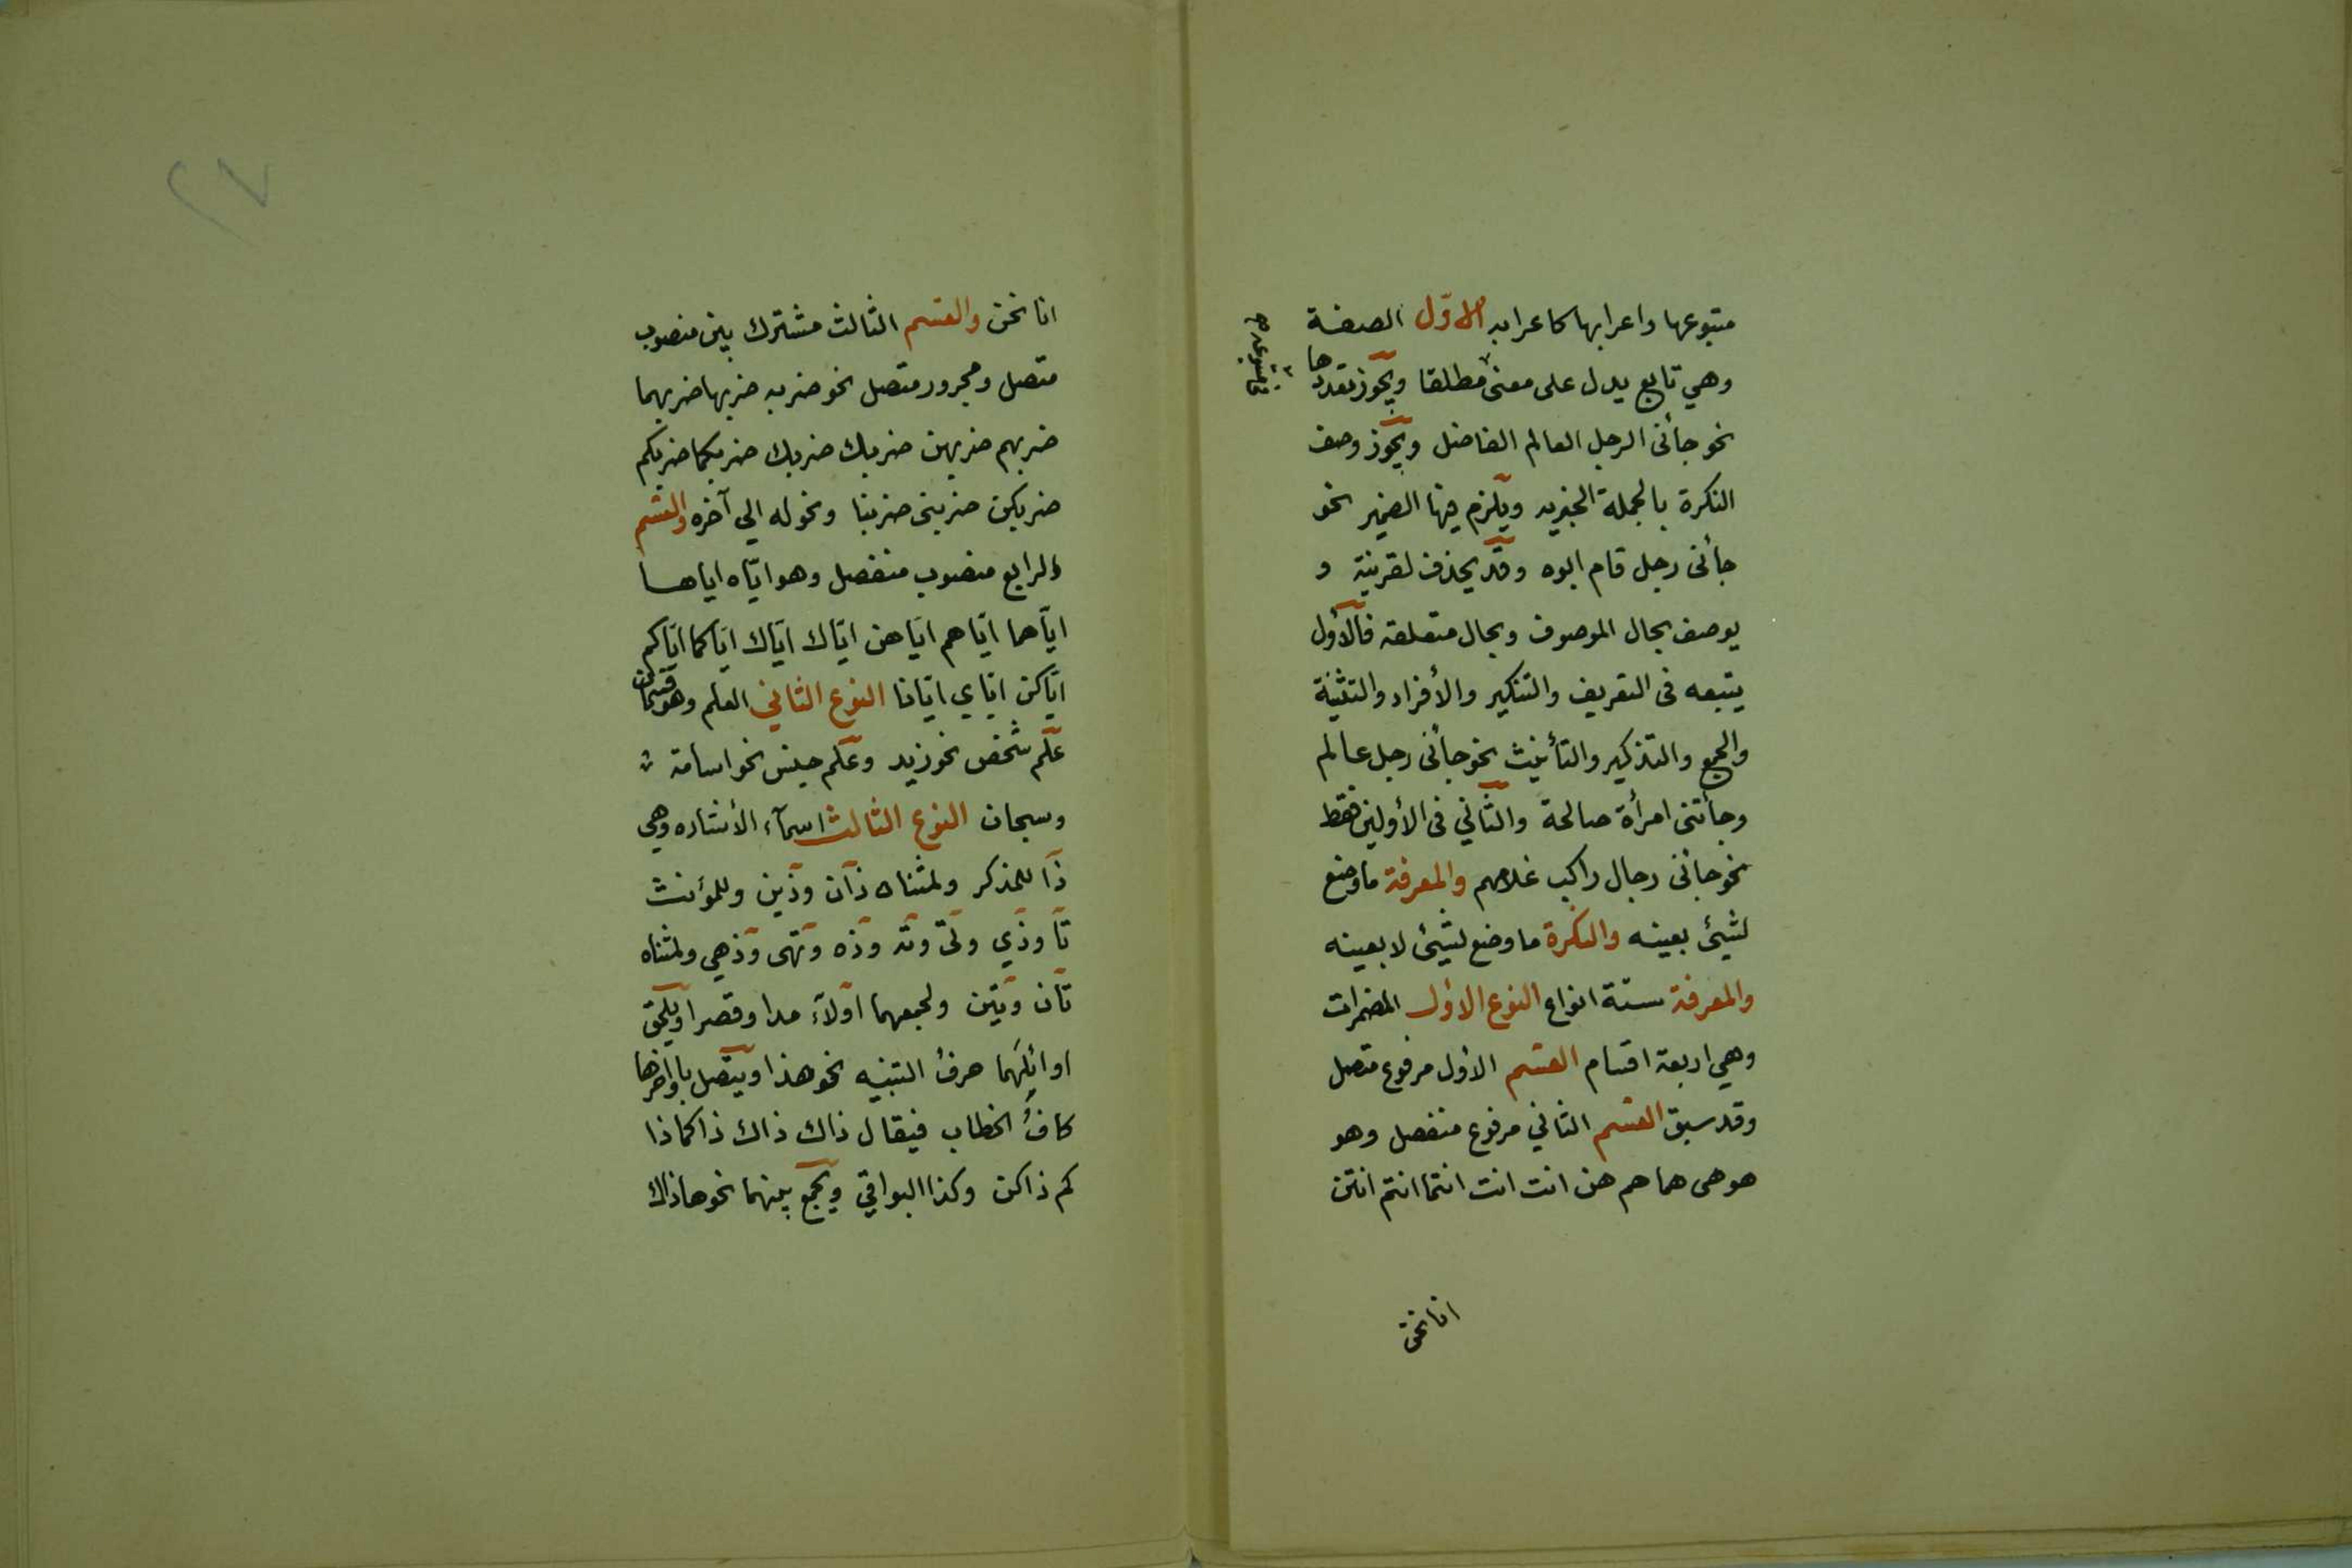 متبوعها واعرابها كاعرابه الاوّل الصفة
وهي تابع يدل على معنى مطلقا ويجوز تعددها
في متبوعه
نحو جأنى الرجل العالم الفاضل ويجوز وصف
النكرة بالجملة الخبريه ويلزم فيها الضمير نحو
جأنى رجل قام ابوه وقد يحذف لقرينة و
يوصف بحال الموصوف وبحال متعلقه فالأول
يتبعه فى التعريف والتنكير والأفراد والتثنية
والجمع والتذكير والتأنيث نحو جأنى رجل عالم
وجأتنى امرأة صالحة والثاني فى الأولين فقط
نحو جانى رجال راكب غلامهم والمعرفة ما وضع
لشيئ بعينه والنكرة ما وضع لشيئ لا بعينه
والمعرفة ستة انواع النوع الاول المضمرات
وهي اربعة اقسام القسم الاول مرفوع متصل
وقد سبق القسم الثاني مرفوع منفصل وهو
هو هى هما هم هن انت انت انتما انتم انتن
انا نحن
٢٧
انا نحن والقسم الثالث مشترك بين منصوب
متصل ومجرور متصل نحو ضربه ضربها ضربهما
ضربهم ضربهن ضربك ضربك ضربكما ضربكم
ضربكن ضربنى ضربنا ونحو له الي آخره والقسم
الرابع منصوب منفصل وهو ايّاه اياها
ايّاهما ايّاهم ايّاهن ايّاك ايّاك ايّاكما ايّاكم
ايّاكن ايّاي ايّانا النوع الثاني العلم وهو قسمان
علم شخص نحو زيد وعلم جنس نحو اسامة
وسبحان النوع الثالث اسمآء الأشاره وهي
ذا للمذكر ولمثناه ذان وذين وللمؤنث
تا وذي وتى وته وذه وتهى وذهي ولمثناه
تان وتين ولجمعهما اولآء مدا وقصرا ويلحق
اوائلهما حرفُ التنبيه نحو هذا ويتصل باواخرها
كافُ الخطاب فيقال ذاك ذاك ذاكما ذا
كم ذاكن وكذا البواقي ويجمع بينهما نحو هاذاك